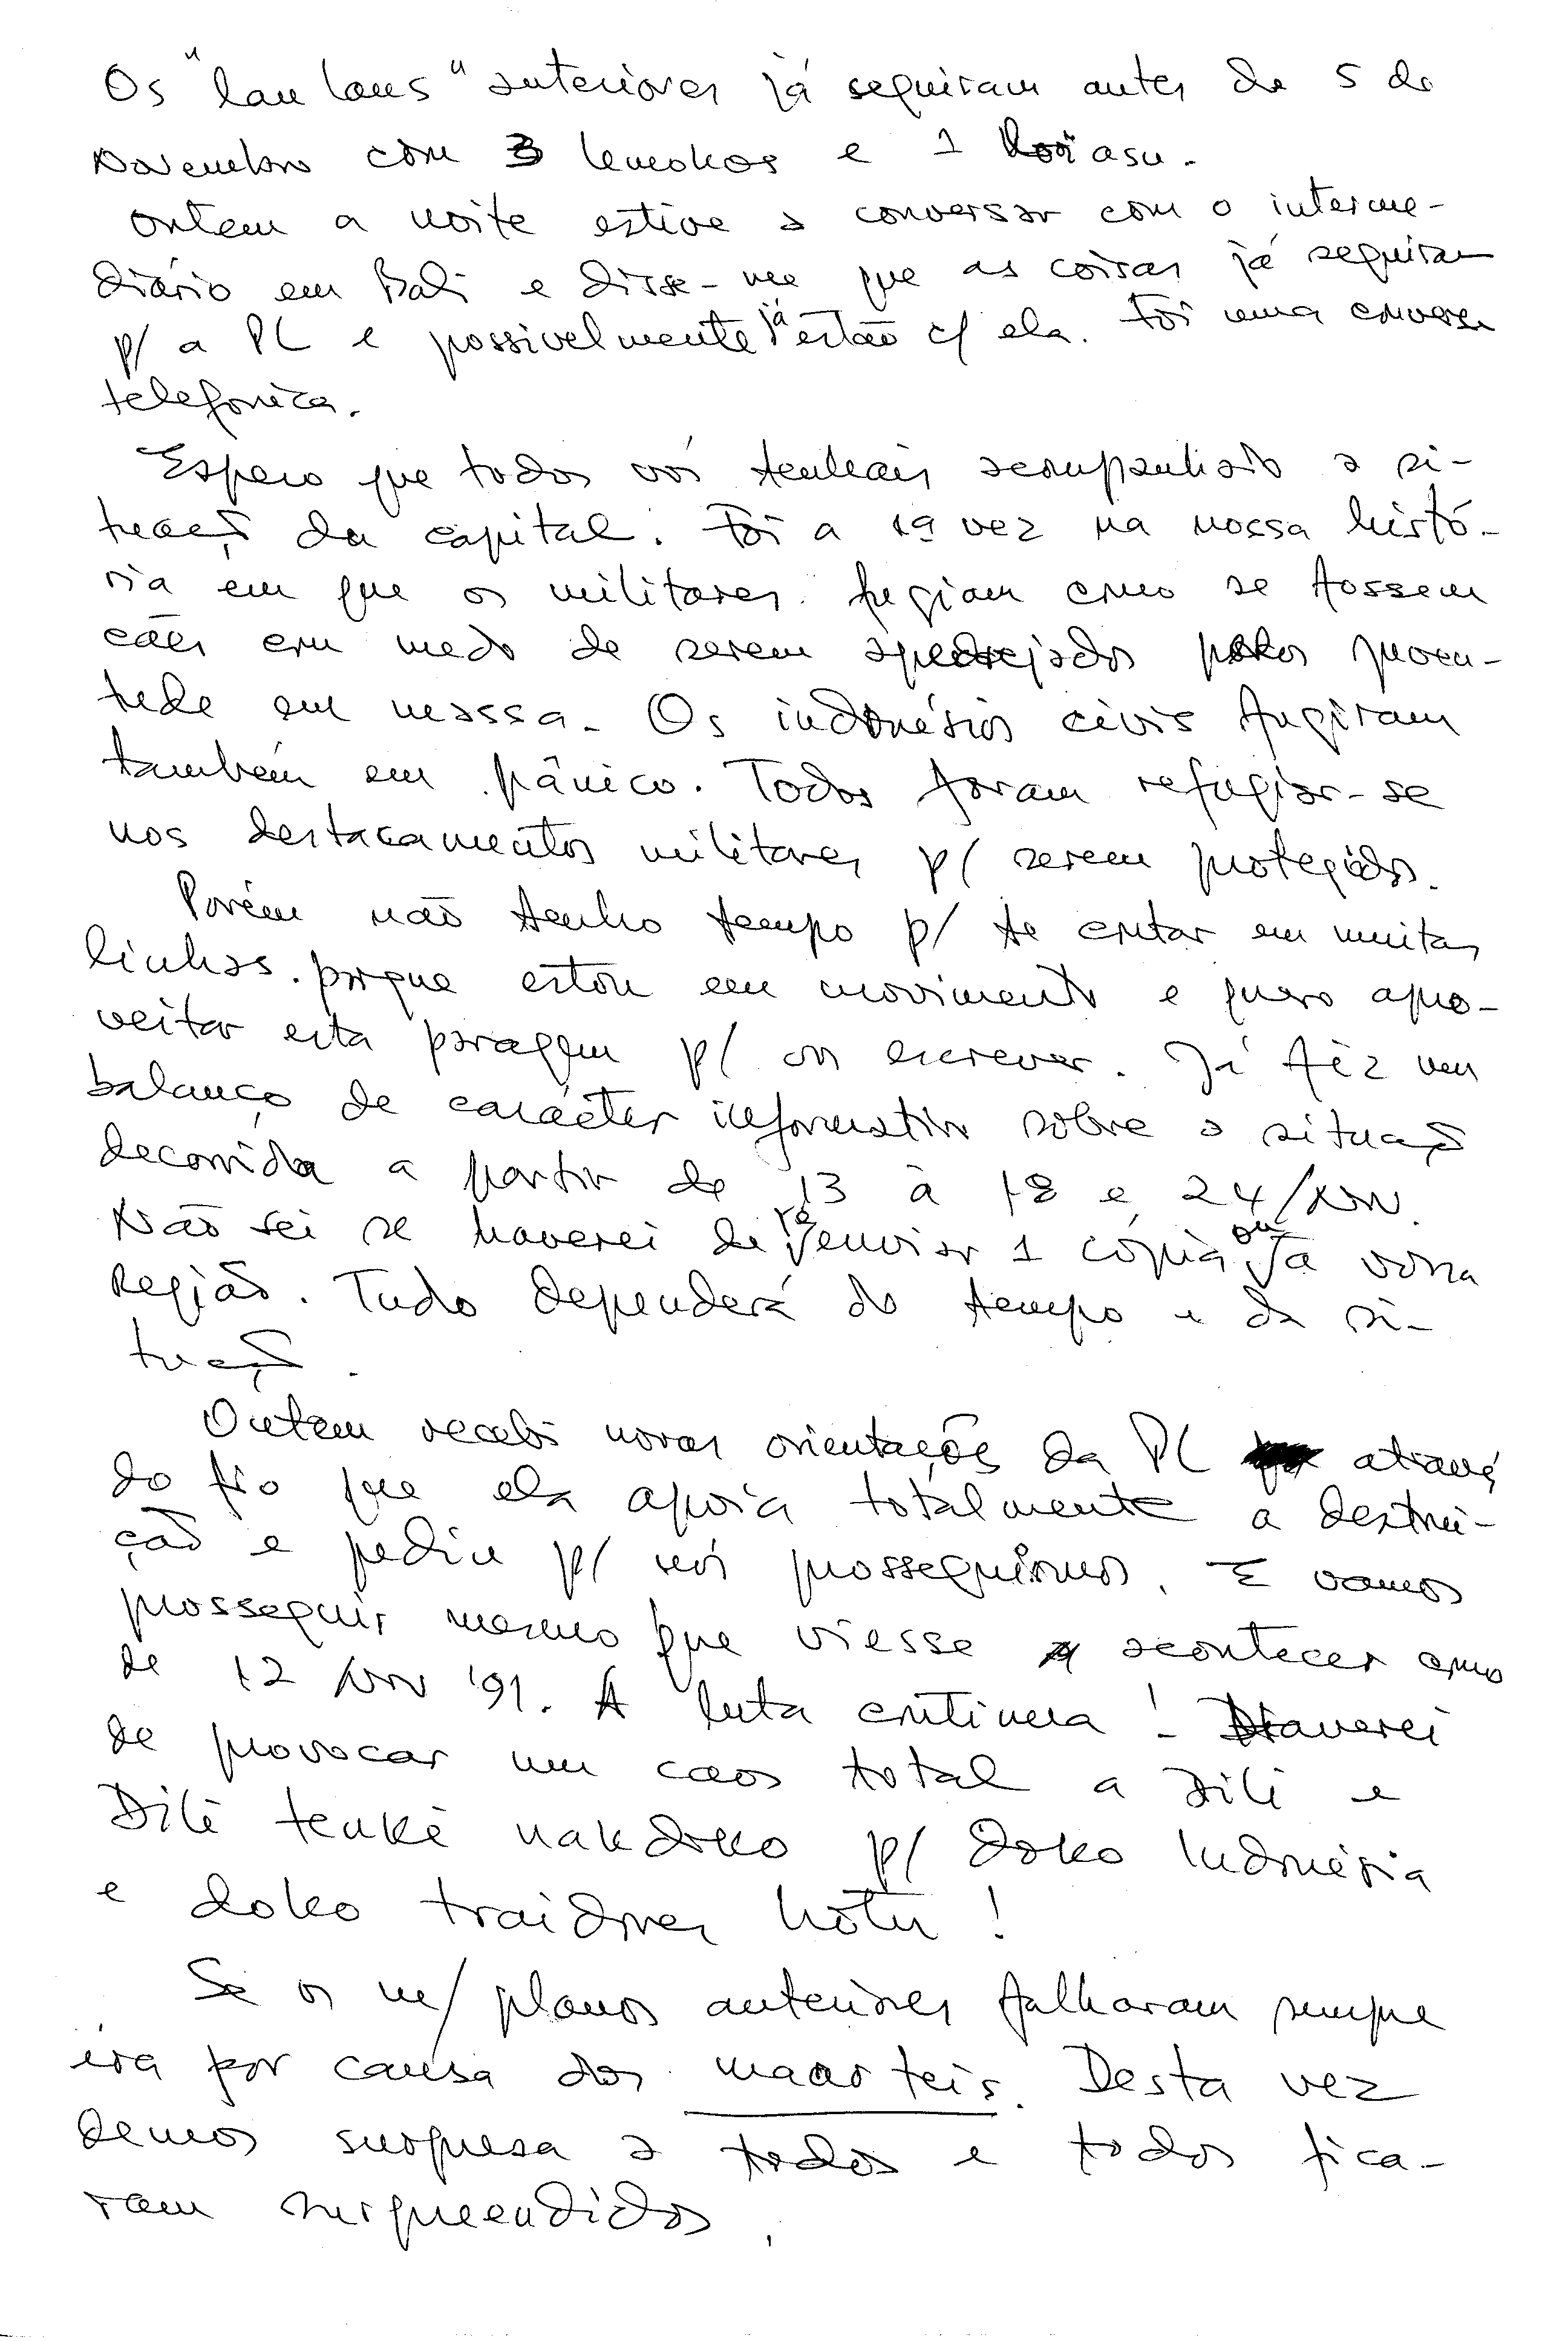 Os "lau laus" anteriores já seguiram antes de 5 de
Novembro com 3 lemokos e 1 loriasu.
Ontem a noite estive a conversar com o interme-
diário em Bali e disse-me que as coisas já seguiram
p/ a PL e possivelmente já estão c/ ela. Foi uma conversa
telefonica.
Espero que todos vós tenhais acompanhado a si-
tuação da capital. Foi a 1ª vez na nossa histó-
ria em que os militares fugiam como se fossem
cães com medo de serem apedrejados pelos juven-
tude em massa. Os indonésios civis fugiram
também em pânico. Todos foram refugiar-se
nos destacamentos militares p/ serem protegidos.
Porém não tenho tempo p/ te contar em muitas
linhas porque estou em movimento e quero apro-
veitar esta paragem p/ vos escrever. Já fêz um
balanço de carácter informativo sobre a situação
decorrida a partir de 13 à 18 e 24/Nov.
Não sei se haverei de vos enviar 1 cópia ou já vossa
Região. Tudo dependerá do tempo e da si-
tuação.
Ontem recebi novas orientações da PL através
do fio que ela apoia totalmente a destrui-
ção e pediu p/ nós prosseguirmos. E vamos
prosseguir mesmo que viesse a acontecer como
de 12 Nov '91. A luta continua! Haverei
de provocar um caos total a Dili e
Dili tenke nakdoko p/ doko Indonésia
e doko traidores hotu!
Se os n/ planos anteriores falharam sempre
era por causa dos maar teis. Desta vez
demos surpresa a todos e todos fica-
ram surpreendidos.